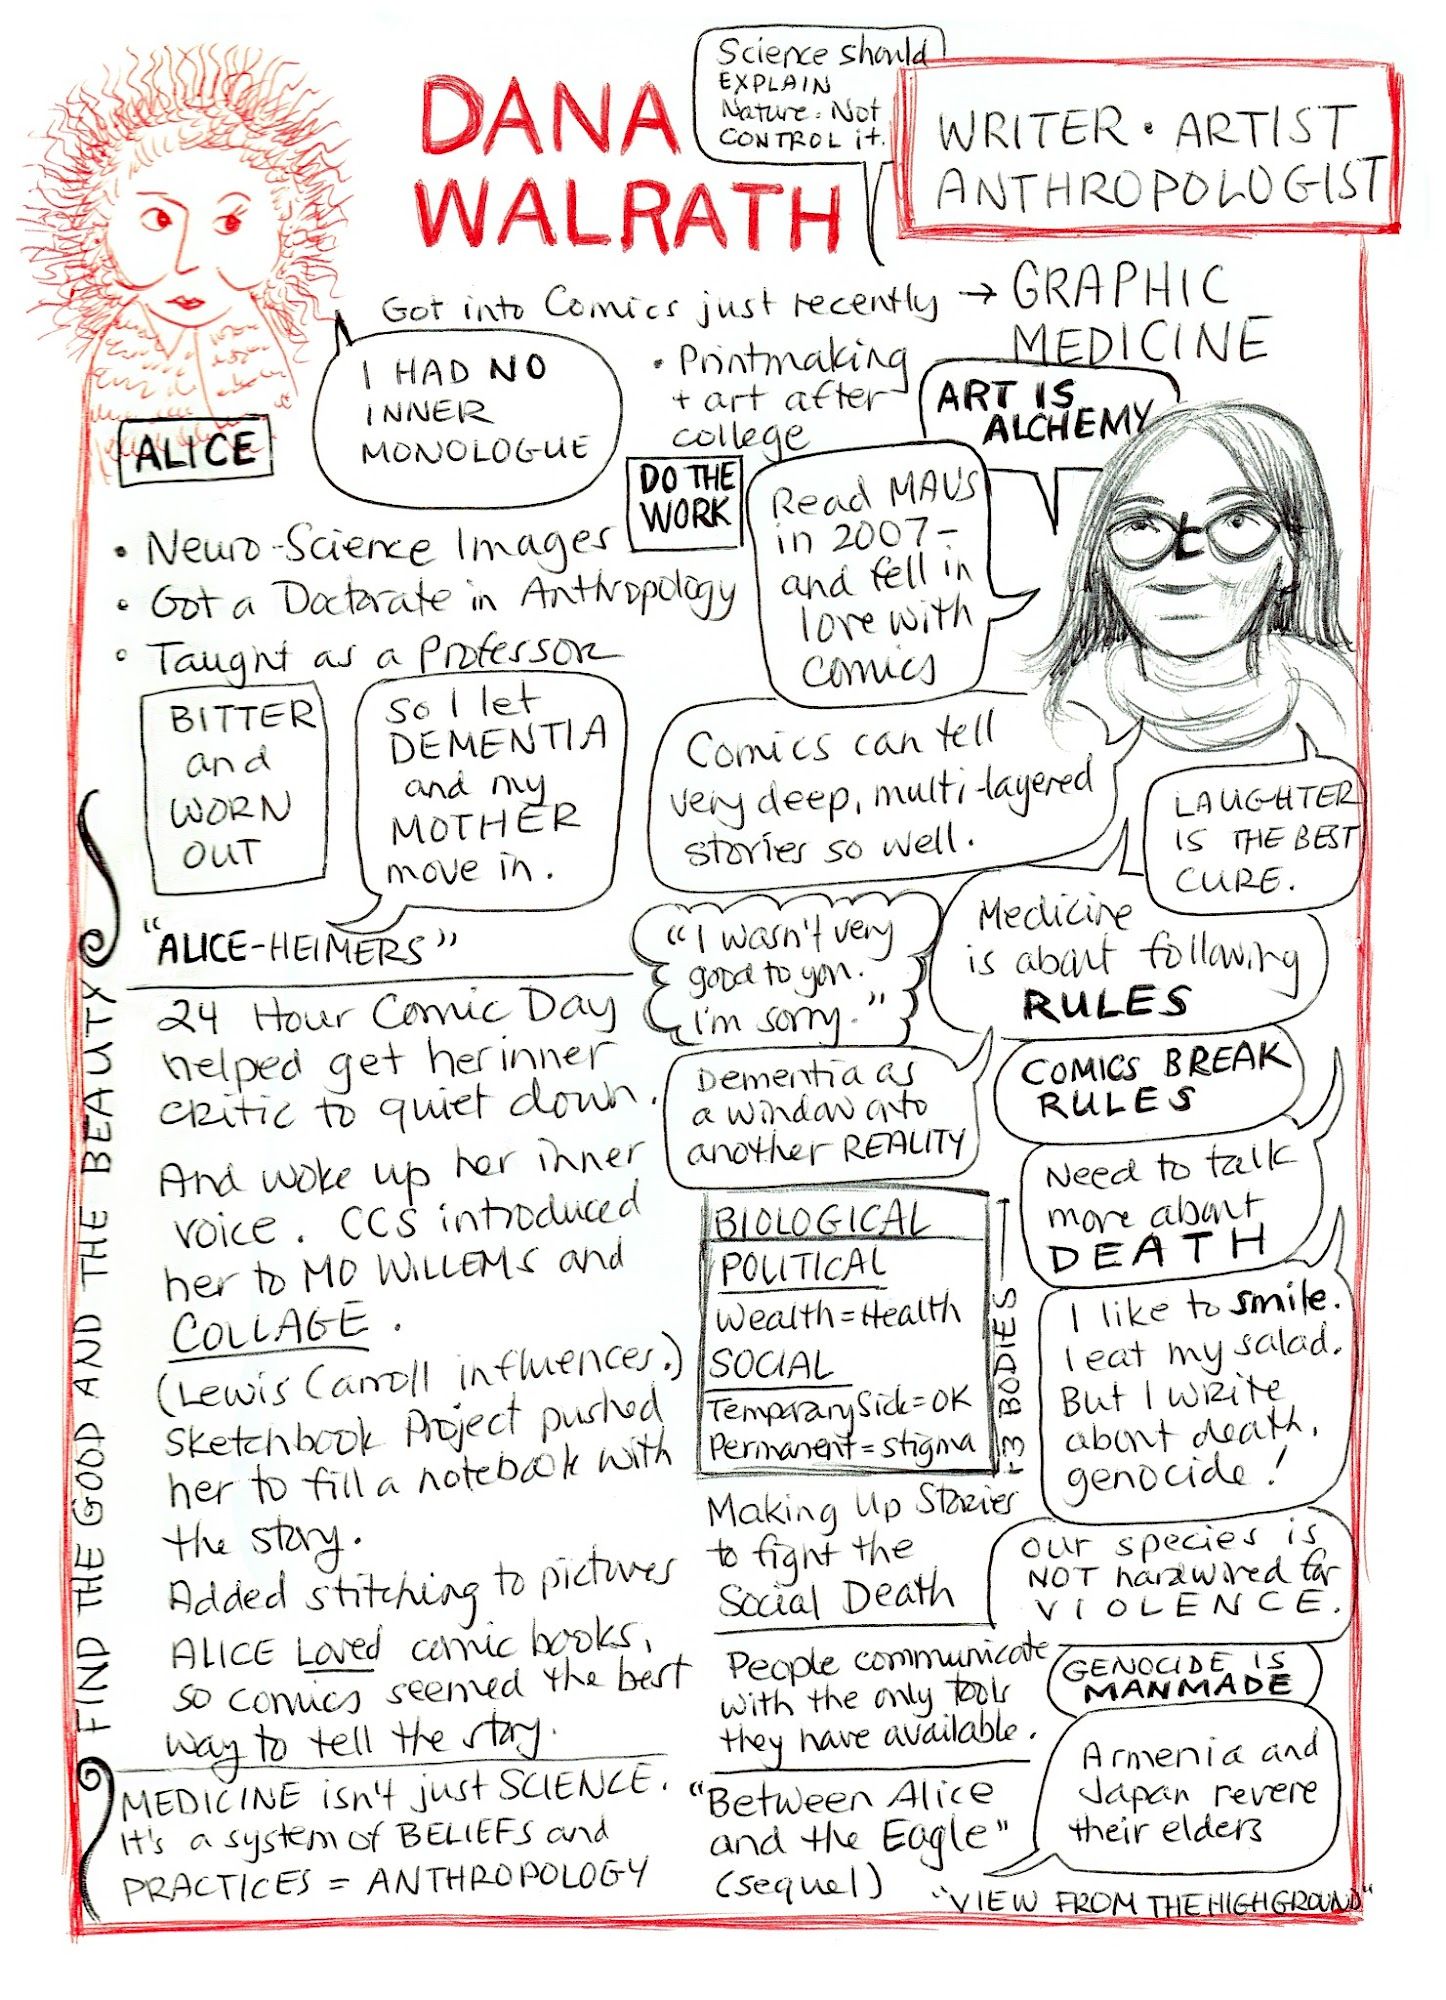 DANA
WALRATH
Science should
EXPLAIN
Nature. Not
CONTROL it.
WRITER • ARTIST
ANTHROPOLOGIST
Got into Comics just recently → GRAPHIC
MEDICINE
ALICE
I HAD NO
INNER
MONOLOGUE
• Printmaking
+ art after
college
ART IS
ALCHEMY
DO THE
WORK
Read MAUS
in 2007-
and fell in
love with
comics
• Neuro-Science Images
• Got a Doctorate in Anthropology
• Taught as a Professor
BITTER
and
WORN
OUT
So I let
DEMENTIA
and my
MOTHER
move in.
Comics can tell
very deep, multi-layered
stories so well.
LAUGHTER
IS THE BEST
CURE.
"ALICE-HEIMERS"
"I wasn't very
good to you.
I'm sorry."
Medicine
is about following
RULES
24 Hour Comic Day
helped get her inner
critic to quiet down.
And woke up her inner
voice. CCS introduced
her to MO WILLEMS and
COLLAGE.
(Lewis Carroll influences.)
Sketchbook Project pushed
her to fill a notebook with
the story.
Added stitching to pictures
ALICE Loved comic books,
so comics seemed the best
way to tell the story.
Dementia as
a window into
another REALITY
COMICS BREAK
RULES
Need to talk
more about
DEATH
BIOLOGICAL
POLITICAL
Wealth=Health
SOCIAL
Temporary Sick=OK
Permanent=stigma
3 BODIES
I like to smile.
I eat my salad.
But I write
about death,
genocide!
Making Up Stories
to fight the
Social Death
Our species is
NOT hardwired for
VIOLENCE.
People communicate
with the only tools
they have available.
GENOCIDE IS
MANMADE
Armenia and
Japan revere
their elders
MEDICINE isn't just SCIENCE.
It's a system of BELIEFS and
PRACTICES = ANTHROPOLOGY
"Between Alice
and the Eagle"
(sequel)
"VIEW FROM THE HIGH GROUND"
FIND THE GOOD AND THE BEAUTY